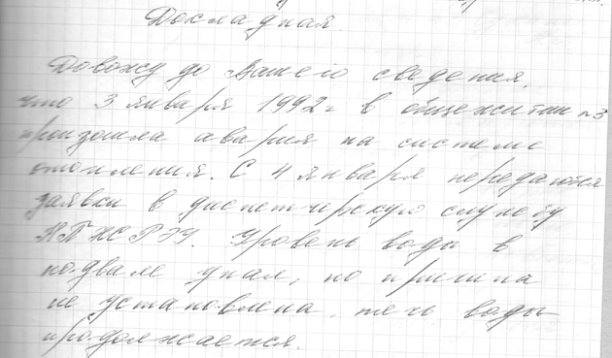 Докладная
Довожу до Вашего сведения,
что 3 января 1992г в общежитии №3
произошла авария на системе
отопления. С 4 января передаются
заявки в диспетчерскую службу
Уровень воды в
подвале упал, но причина
не установлена, течь воды
продолжается.